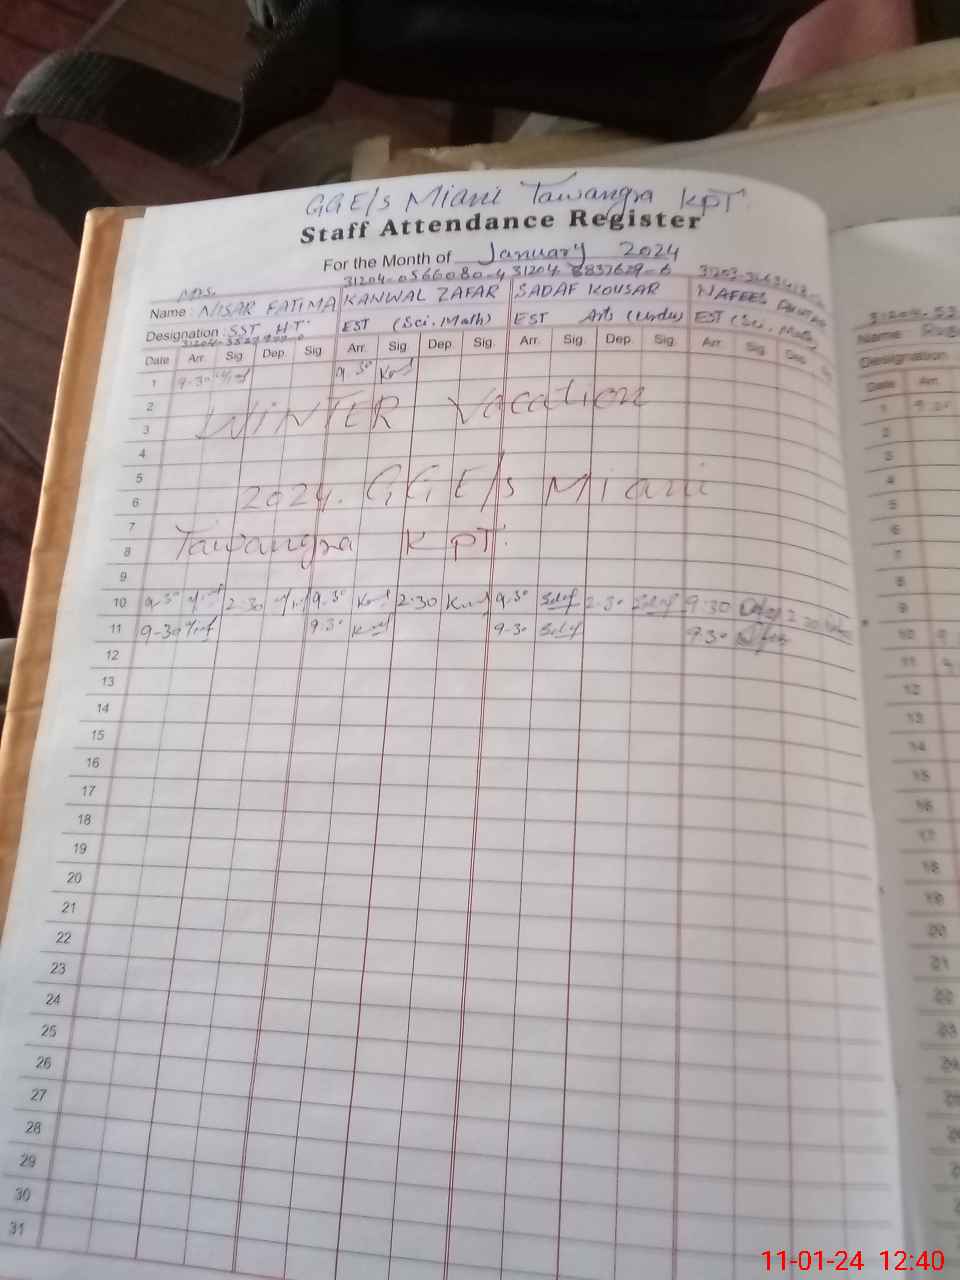 GGE/s Miani Tawangra KPT.
Staff Attendance Register
For the Month of January 2024
31204-0566080-4 31204 6837629-6
Mrs.
Name : NISAR FATIMA KANWAL ZAFAR SADAF KOUSAR NAFEES
Designation : SST H.T. EST (Sci. Math) EST Arts (Urdu) EST (Sci. Math)
Date Arr. Sig. Dep. Sig. Arr. Sig. Dep. Sig. Arr. Sig. Dep. Sig. Arr. Sig. Dep. Sig.
1 9-30 9-30
2 WINTER Vacation
3
4
5
6 2024. GGE/s Miani
7
8 Tawangra KPT.
9
10 9-30 2-30 9-30 2-30 9-30 2-30 9-30 2-30
11 9-30 9-30 9-30 9-30
12
13
14
15
16
17
18
19
20
21
22
23
24
25
26
27
28
29
30
31
Name
Designation
Date Arr.
1 9-30
2
3
4
5
6
7
8
9
10 9
11 9
12
13
14
15
16
17
18
19
20
21
22
23
24
11-01-24 12:40